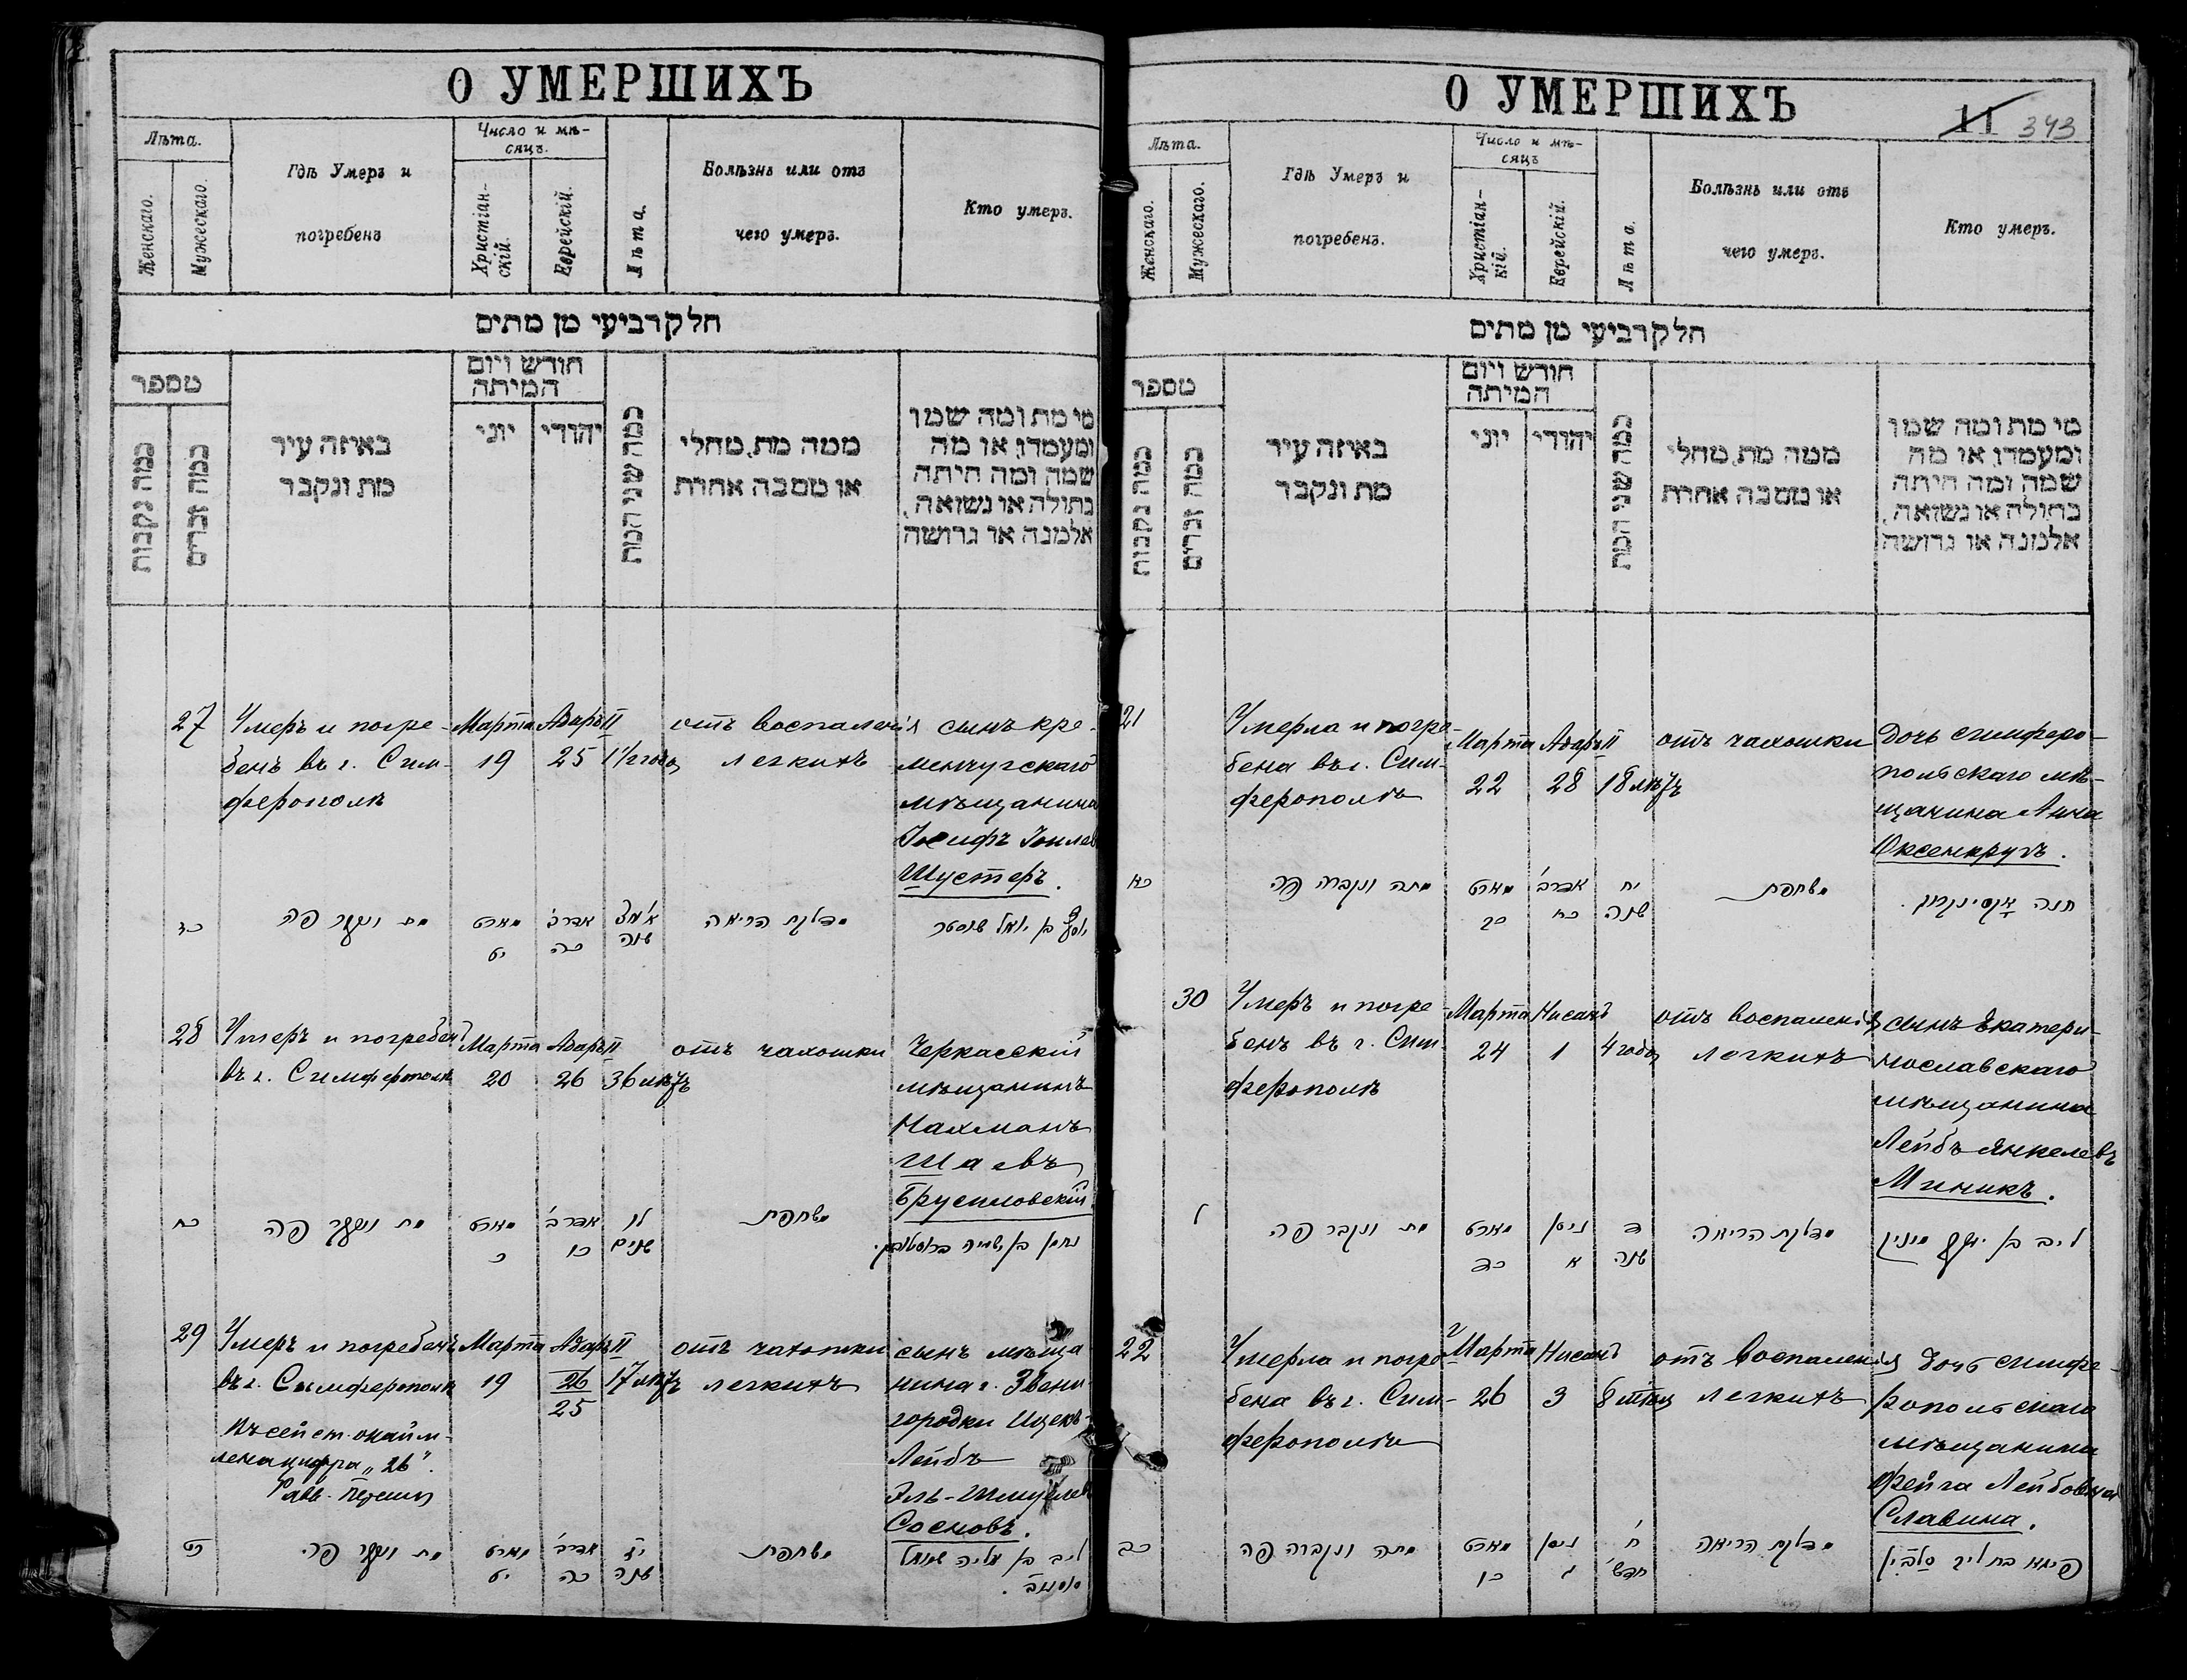 О УМЕРШИХЪ
Лѣта.
Женскаго.
Мужескаго.
Гдѣ Умеръ и
погребенъ
Число и мѣ-
сяцъ.
Христіан-
скій.
Еврейскій.
Лѣта.
Болѣзнь или отъ
чего умеръ.
Кто умеръ.
חלק רביעי מן מתים
מספר
כמה נקבות
כמה זכרים
באיזה עיר
מת ונקבר
חודש ויום
המיתה
יוני
יהודי
כמה שני המת
ממה מת, מחלי
או מסבה אחרת
מי מת ומה שמו
ומעמדו, או מה
שמה ומה היתה
בתולה או נשואה,
אלמנה או גרושה
27
Умеръ и погре-
бенъ въ г. Сим-
ферополѣ
Марта
19
Адаръ II
25
1½ года
отъ воспаленія
легкихъ
сынъ кре-
менчугскаго
мѣщанина
Іосифъ Іоилев
Шустеръ.
כז
מת ונקבר פה
מארט
יט
אדר ב'
כה
שנה
מדלקת הריאה
יוסף בן יואל שוסטר
28
Умеръ и погребенъ
въ г. Симферополѣ
Марта
20
Адаръ II
26
36 лѣтъ
отъ чахотки
Черкасскій
мѣщанинъ
Нахманъ
Шаевъ
Брусиловскій.
כח
מת ונקבר פה
מארט
כ
אדר ב'
כו
לו
שנים
משחפת
נחמן בן ישעיה ברוסילובסקי.
29
Умеръ и погребенъ
въ г. Симферополѣ
Въ сей ст. окайм-
лена цифра „26".
Равв.
Марта
19
Адаръ II
26
25
17 лѣтъ
отъ чахотки
легкихъ
сынъ мѣща
нина г. Звени-
городки Ицекъ-
Лейбъ
Эль-Шмулев
Сосновъ.
כט
מת ונקבר פה
מארט
יט
אדר ב'
כה
יז
שנה
משחפת
ליב בן אליה שמואל
סוסנוב.
О УМЕРШИХЪ
11 343
Лѣта.
Женскаго.
Мужескаго.
Гдѣ Умеръ и
погребенъ.
Число и мѣ-
сяцъ
Христіан-
кій.
Еврейскій.
Лѣта.
Болѣзнь или отъ
чего умеръ.
Кто умеръ.
חלק רביעי מן מתים
מספר
כמה נקבות
כמה זכרים
באיזה עיר
מת ונקבר
חודש ויום
המיתה
יוני
יהודי
כמה שני המת
ממה מת, מחלי
או מסבה אחרת
מי מת ומה שמו
ומעמדו, או מה
שמה ומה היתה
בתולה או נשואה,
אלמנה או גרושה
21
Умерла и погре-
бена въ г. Сим-
ферополѣ
Марта
22
Адаръ II
28
18 лѣтъ
отъ чахотки
Дочь симферо-
польскаго мѣ-
щанина Анна
Оксенкругъ.
כא
מתה ונקברה פה
מארט
כב
אדר ב'
כח
יח
שנה
משחפת
חנה אקסינקרוג.
30
Умеръ и погре
бенъ въ г. Сим
ферополѣ
Марта
24
Нисанъ
1
4 года
отъ воспаленія
легкихъ
сынъ Екатери-
нославскаго
мѣщанина
Лейбъ Янкелевъ
Миникъ.
ל
מת ונקבר פה
מארט
כד
ניסן
א
ד
שנה
מדלקת הריאה
ליב בן יעקב מיניק
22
Умерла и погре-
бена въ г. Сим-
ферополѣ
Марта
26
Нисанъ
3
8 мѣсяц
отъ воспаленія
легкихъ
дочь симфе-
ропольскаго
мѣщанина
Фейга Лейбовна
Славина.
כב
מתה ונקברה פה
מארט
כו
ניסן
ג
ח'
חדש'
מדלקת הריאה
פיגא בת ליב סלבין